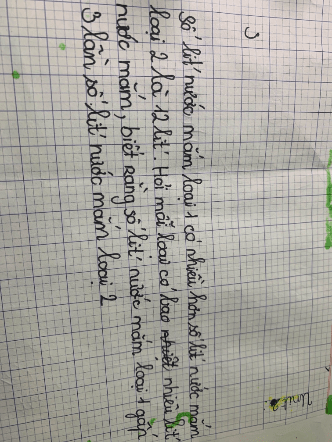 3
Số lít nước mắm loại 1 có nhiều hơn số lít nước mắm
loại 2 là 12 lít. Hỏi mỗi loại có bao nhiêu lít
nước mắm, biết rằng số lít nước mắm loại 1 gấp
3 lần số lít nước mắm loại 2